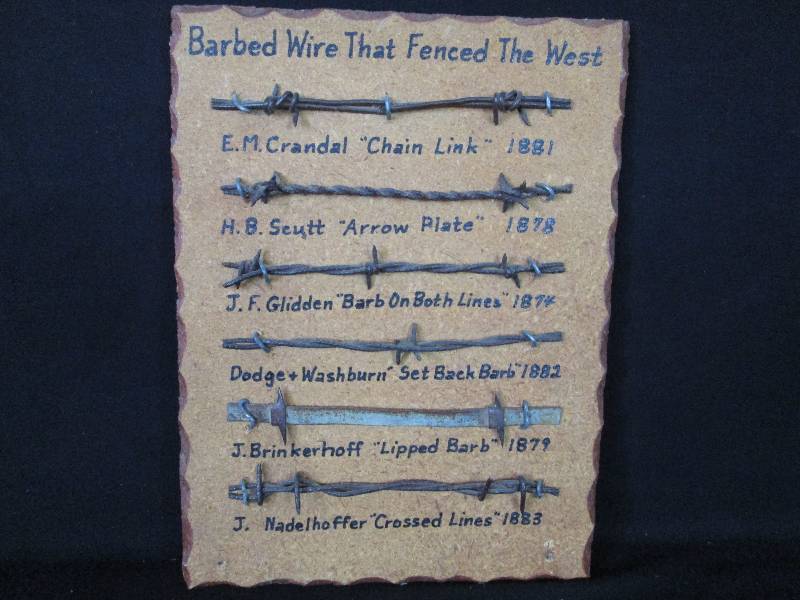 Barbed Wire That Fenced The West
E.M. Crandal "Chain Link" 1881
H.B. Scutt "Arrow Plate" 1878
J.F. Glidden "Barb On Both Lines" 1874
Dodge + Washburn "Set Back Barb" 1882
J. Brinkerhoff "Lipped Barb" 1879
J. Nadelhoffer "Crossed Lines" 1883